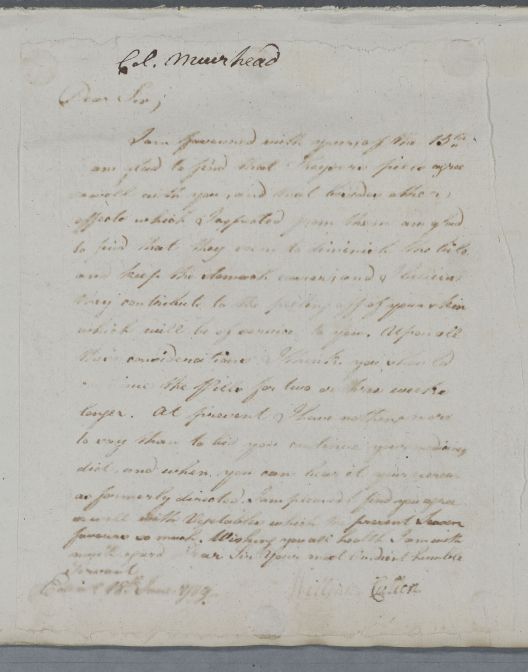 Col. Muirhead
Dear Sir,
I am favoured with yours of the 15th
am glad to find that the pills agree
so well with you, and that besides other
effects which I expected from them am glad
to find that they seem to diminish the bile
and keep the stomach and I believe
very contribute to the putting off of your skin
which will be of service to you. Upon all
these considerations I think you should
continue the Pills for two or three weeks
longer. At present I have nothing more
to say than to bid you continue your
diet, and when you can bear it your
as formerly directed. I am pleased to find you agree
so well with Vegetables which the present Season
favours so much. Wishing you all health I am with
regard Dear Sir Your most Obedient humble
Servant
18th June
William Cullen